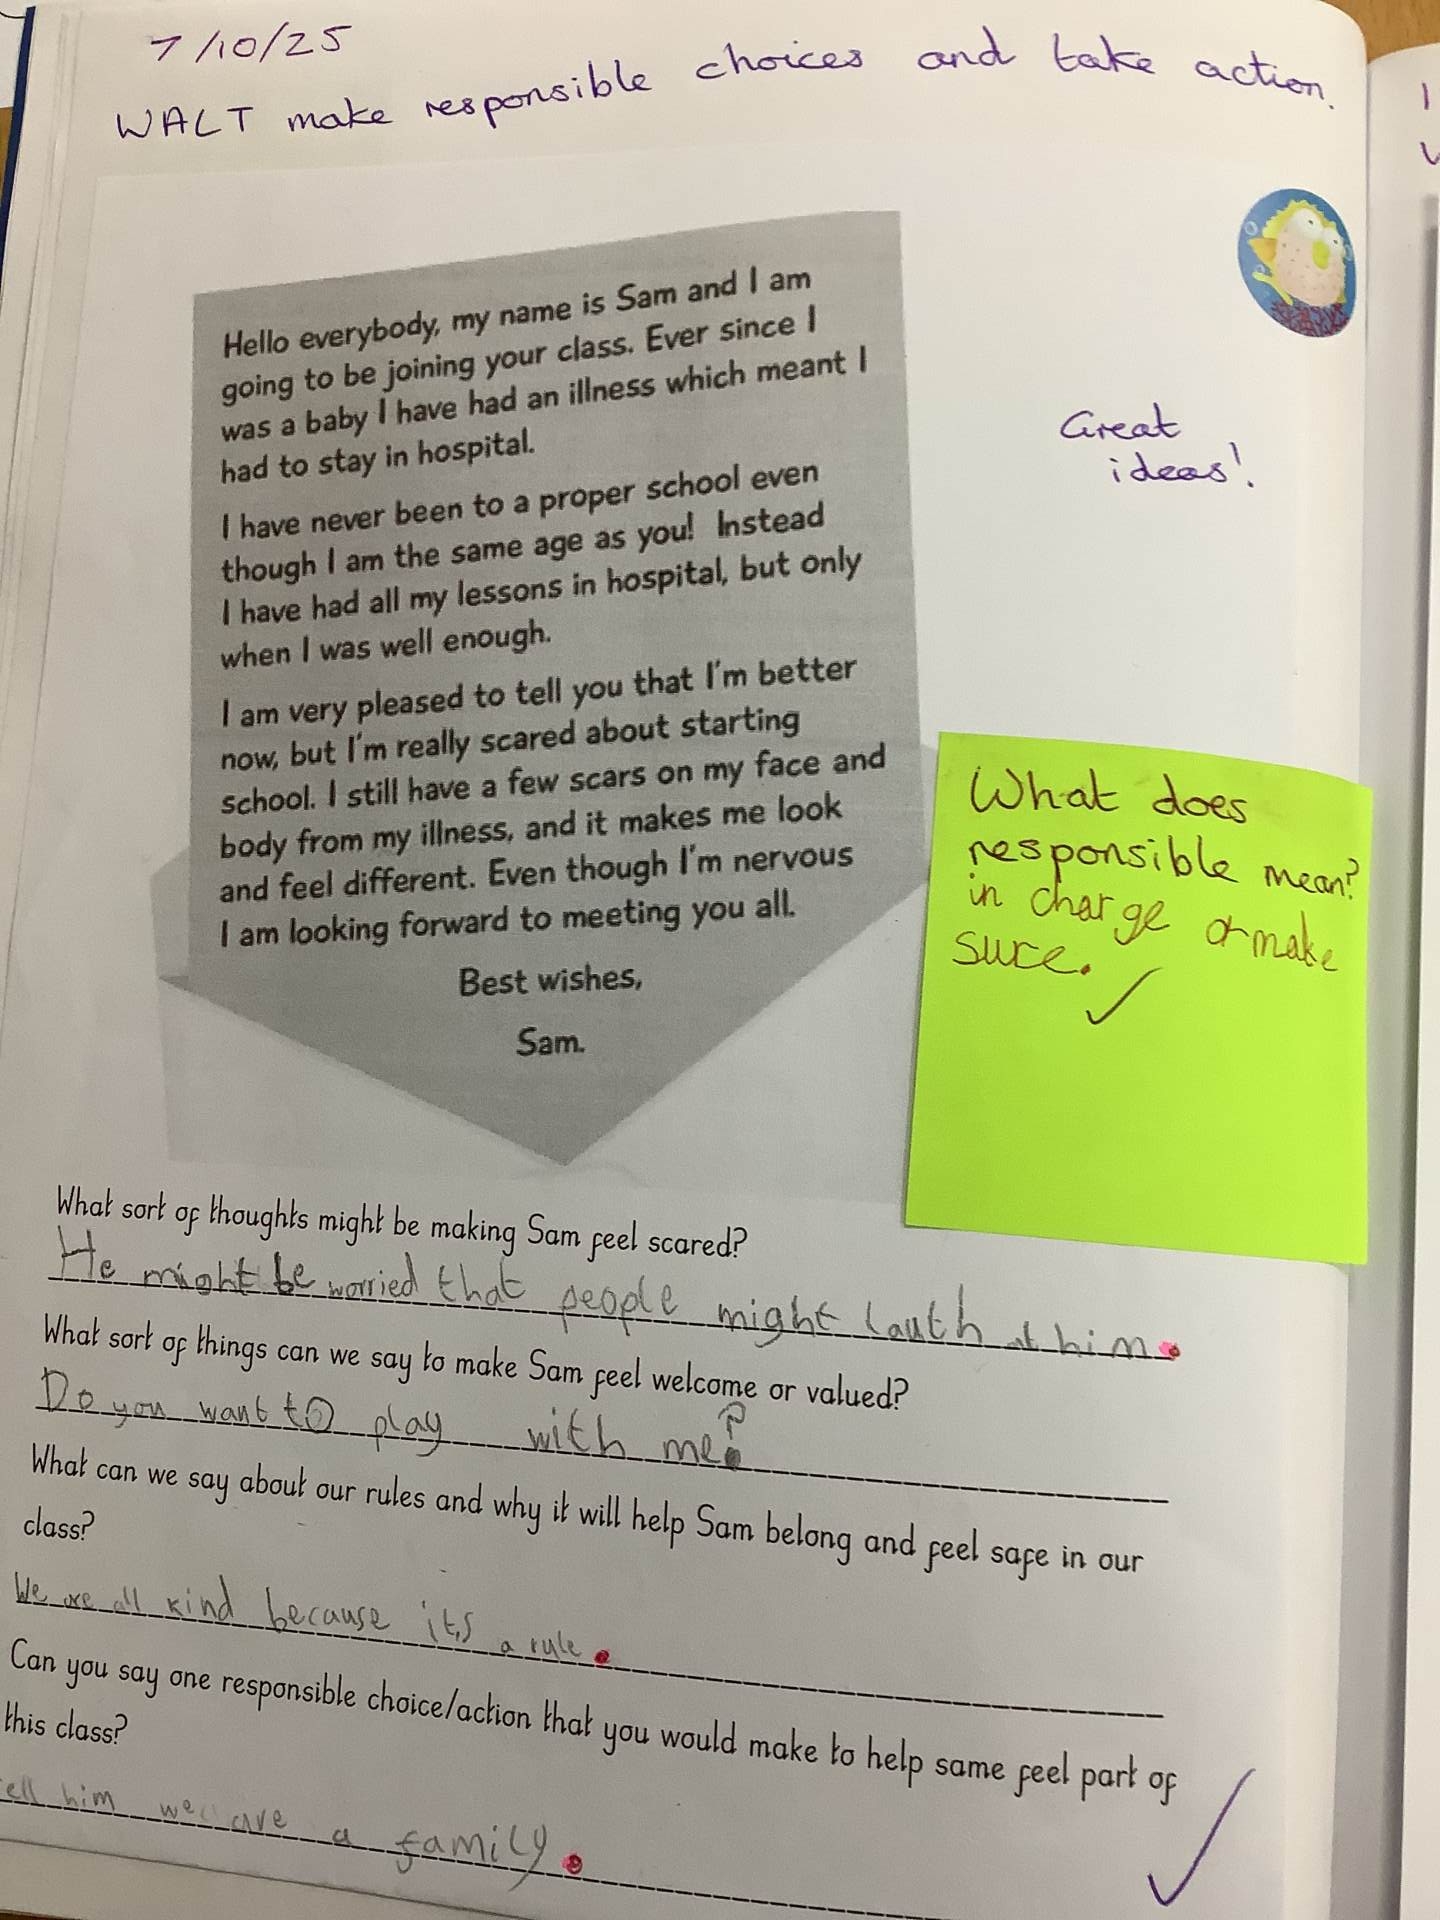 7/10/25
WALT make responsible choices and take action.
Hello everybody, my name is Sam and I am
going to be joining your class. Ever since I
was a baby I have had an illness which meant I
had to stay in hospital.
I have never been to a proper school even
though I am the same age as you! Instead
I have had all my lessons in hospital, but only
when I was well enough.
I am very pleased to tell you that I'm better
now, but I'm really scared about starting
school. I still have a few scars on my face and
body from my illness, and it makes me look
and feel different. Even though I'm nervous
I am looking forward to meeting you all.
Best wishes,
Sam.
Great
ideas!
What does
responsible mean?
in charge or make
sure.
What sort of thoughts might be making Sam feel scared?
He might be worried that people might lauth at him.
What sort of things can we say to make Sam feel welcome or valued?
Do you want to play with me?
What can we say about our rules and why it will help Sam belong and feel safe in our
class?
We are all kind because it,s a rule.
Can you say one responsible choice/action that you would make to help same feel part of
this class?
ell him we are a family.